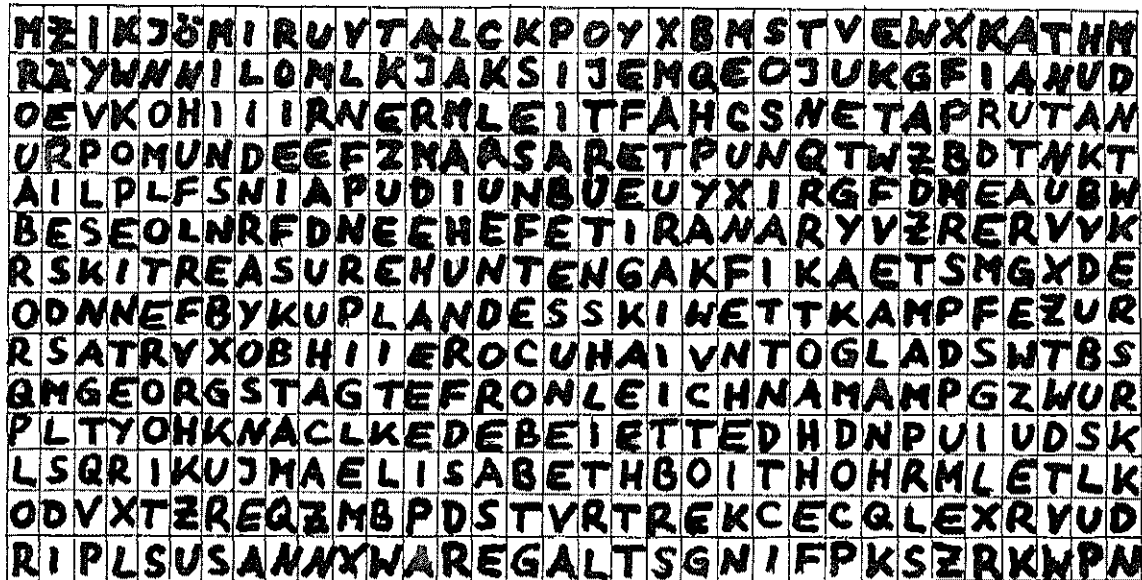 MZIKJÖMIRUVTALCKPOYXBMSTVEWXKATHM
RÄYWNNILOMLKJAKSIJEMQEOJUKGFIANUD
OEVKOHIIIRNERMLEITFAHCSNETAPRUTAN
URPOMUNDEEFZMARSARETPUNQTWZBDTNKT
AILPLFSNIAPUDIUNBUEUYXIRGFDMEAUBW
BESEOLNRFDNEEHEFETIRANARYVZRERVVK
RSKITREASUREHUNTENGAKFIKAETSMGXDE
ODNNEFBYKUPLANDESSKIWETTKAMPFEZUR
RSATRVXOBHIIEROCUHAIVNTOGLADSWTBS
QMGEORGSTAGTEFRONLEICHNAMAMPGZWUR
PLTYOHKNACLKEDEBEIETTEDHDNPUIUDSK
LSQRIKUJMAELISABETHBOITHOHRMLETLK
ODVXTZREQZMBPDSTVRTREKCECQLEXRVUD
RIPLSUSANNXWAREGALTSGNIFPKSZRKWPN